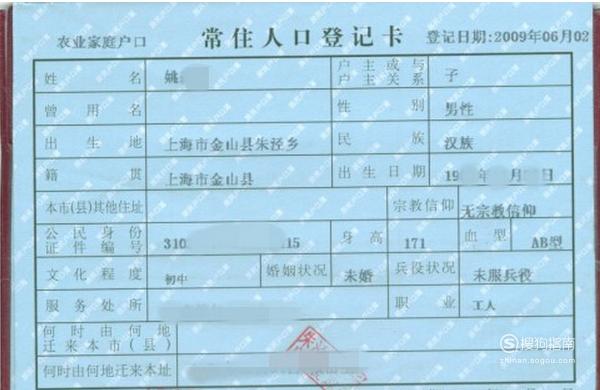 农业家庭户口 常住人口登记卡 登记日期:2009年06月02
姓名 姚 户主或与户主关系 子
曾用名 性别 男性
出生地 上海市金山县朱泾乡 民族 汉族
籍贯 上海市金山县 出生日期 19 月 日
本市(县)其他住址 宗教信仰 无宗教信仰
公民身份证件编号 310 15 身高 171 血型 AB型
文化程度 初中 婚姻状况 未婚 兵役状况 未服兵役
服务处所 职业 工人
何时由何地迁来本市(县)
何时由何地迁来本址
搜狗指南
zhinan.sogou.com